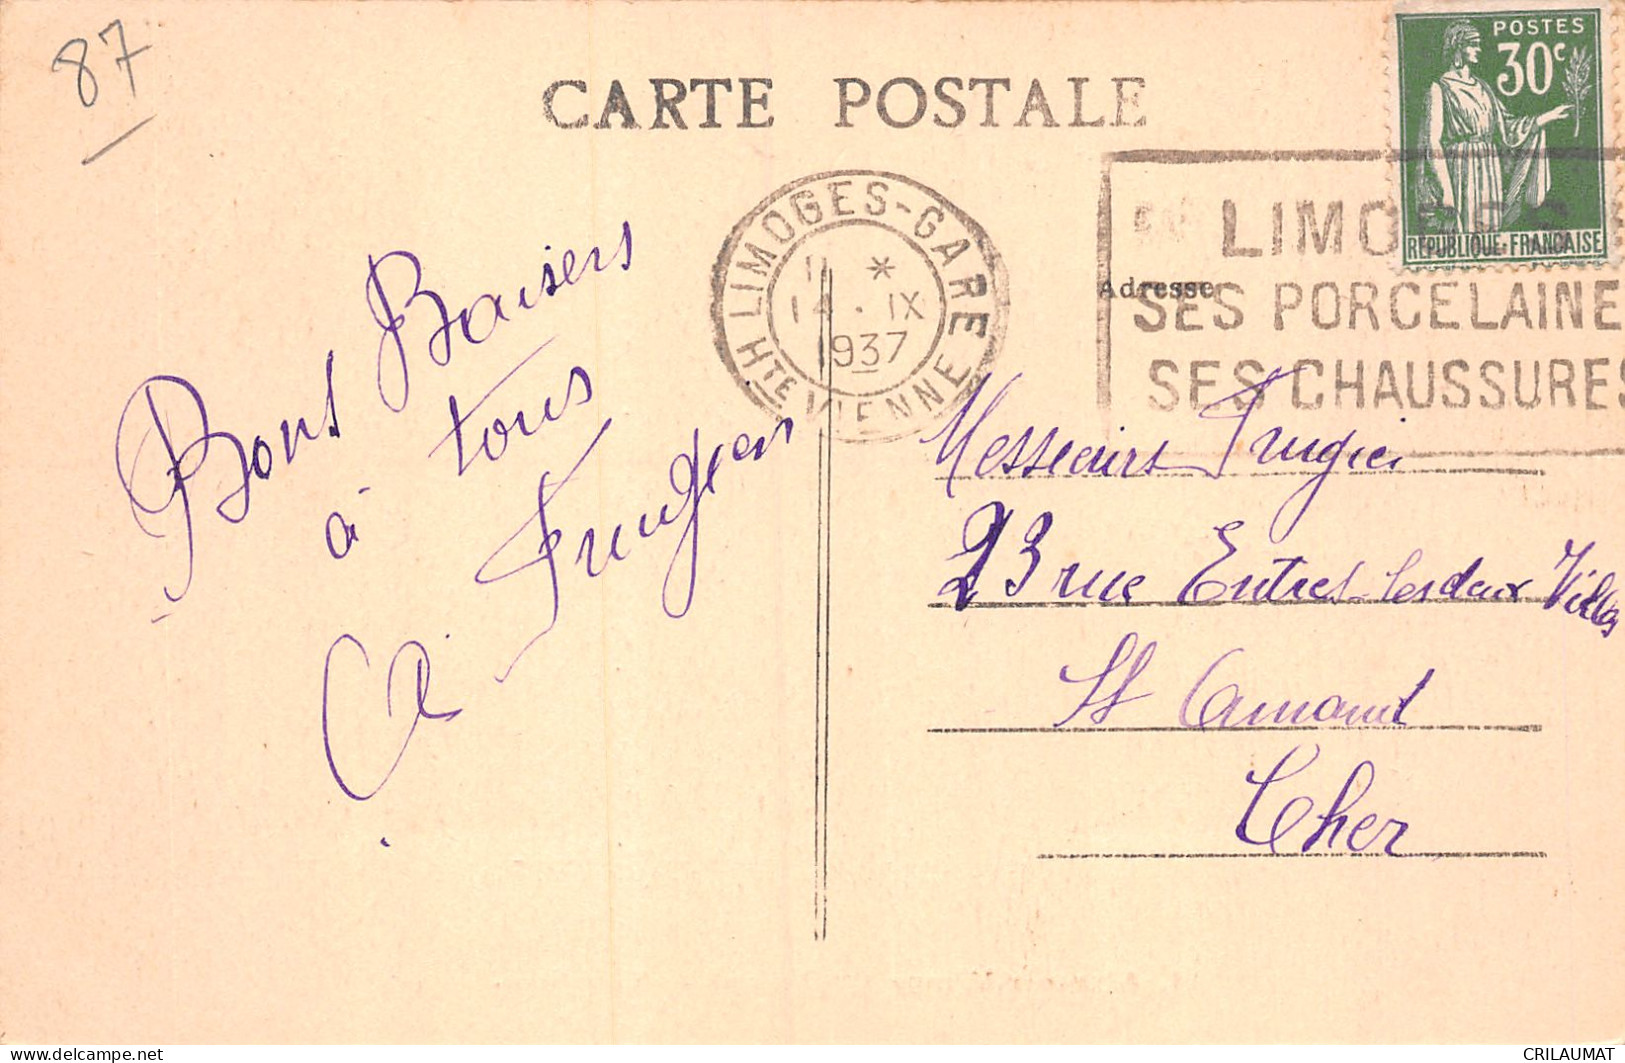 87
CARTE POSTALE
POSTES
30c
REPUBLIQUE·FRANÇAISE
LIMOGES-GARE
11 *
14 · IX
1937
HTE VIENNE
LIMOGES
SES PORCELAINE
SES CHAUSSURES
Adresse
Bons Baisers
à tous
Messieurs
23 rue Entres les deux Villes
St Amand
Cher
CRILAUMAT